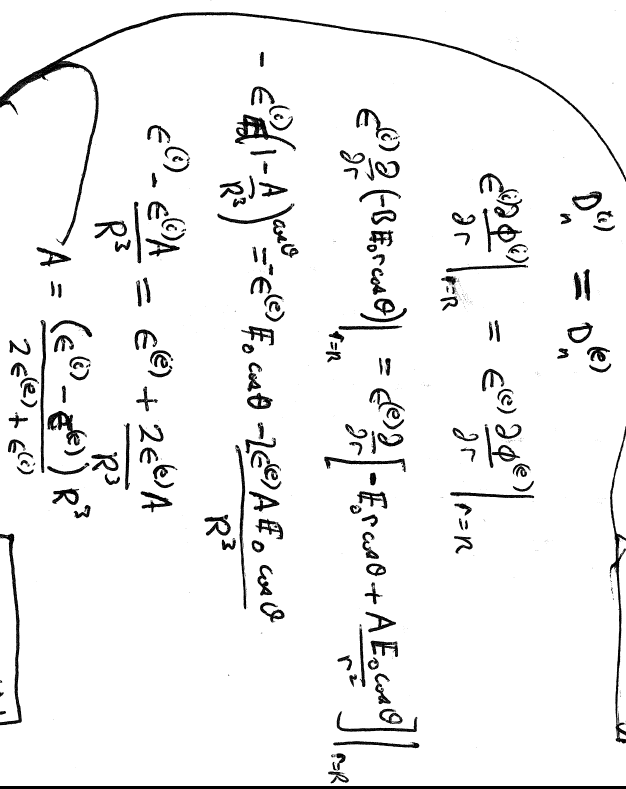 Dₙ⁽ⁱ⁾ = Dₙ⁽ᵉ⁾
ϵ⁽ⁱ⁾ ∂ϕ⁽ⁱ⁾/∂r |r=R = ϵ⁽ᵉ⁾ ∂ϕ⁽ᵉ⁾/∂r |r=R
ϵ⁽ⁱ⁾ ∂/∂r (-B E₀ r cosθ)|r=R = ϵ⁽ᵉ⁾ ∂/∂r [-E₀ r cosθ + A E₀ cosθ/r²]|r=R
- ϵ⁽ⁱ⁾ (1 - A/R³) cosθ = -ϵ⁽ᵉ⁾ E₀ cosθ - 2ϵ⁽ᵉ⁾ A E₀ cosθ/R³
ϵ⁽ⁱ⁾ - ϵ⁽ⁱ⁾A/R³ = ϵ⁽ᵉ⁾ + 2ϵ⁽ᵉ⁾A/R³
A = (ϵ⁽ⁱ⁾ - ϵ⁽ᵉ⁾) R³/2ϵ⁽ᵉ⁾ + ϵ⁽ⁱ⁾